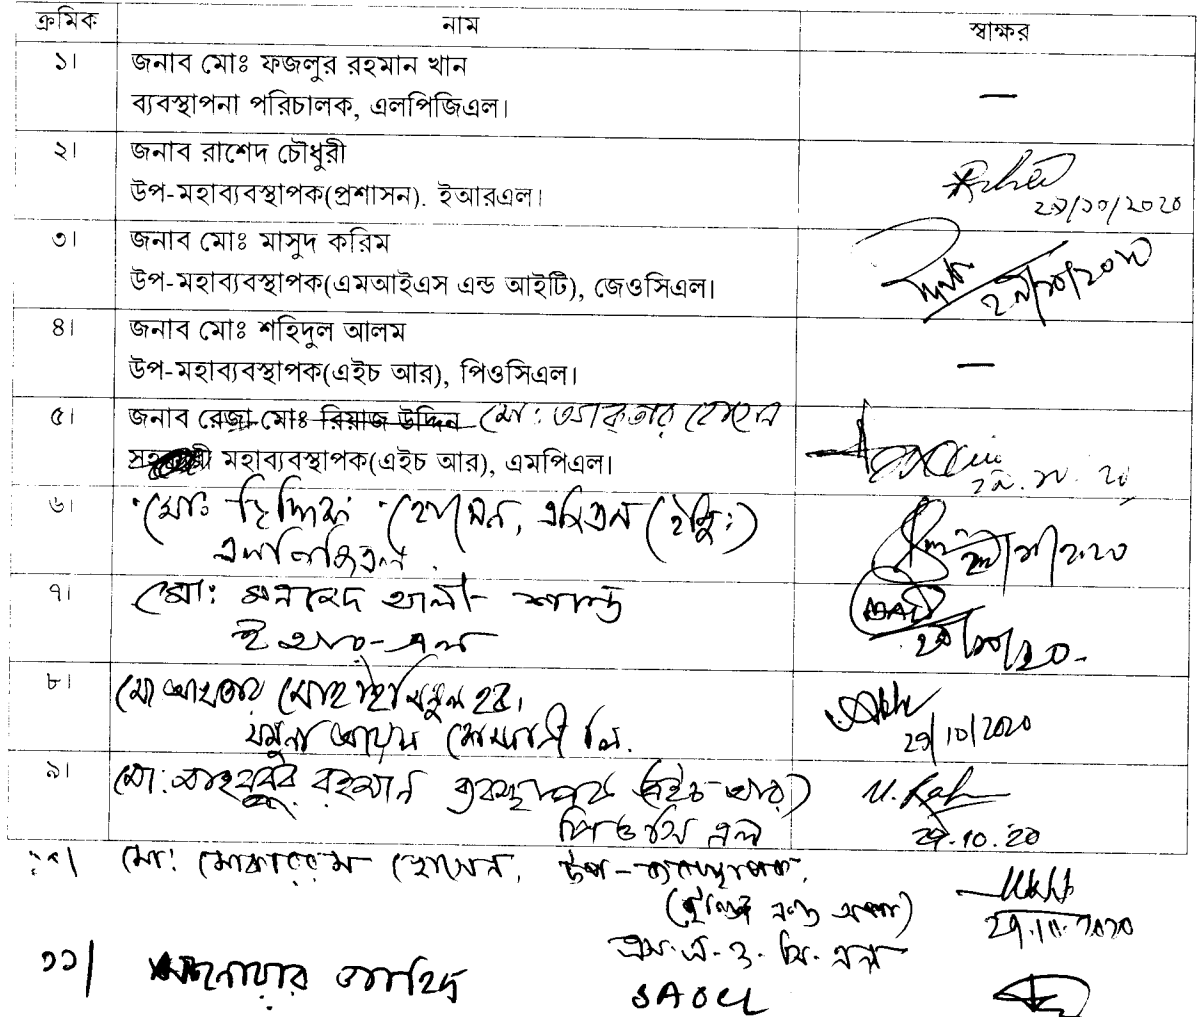 ক্রমিক নাম স্বাক্ষর
১। জনাব মোঃ ফজলুর রহমান খান
ব্যবস্থাপনা পরিচালক, এলপিজিএল। —
২। জনাব রাশেদ চৌধুরী
উপ-মহাব্যবস্থাপক(প্রশাসন). ইআরএল।
২৯/১০/২০২০
৩। জনাব মোঃ মাসুদ করিম
উপ-মহাব্যবস্থাপক(এমআইএস এন্ড আইটি), জেওসিএল।
২৯/১০/২০২০
৪। জনাব মোঃ শহিদুল আলম
উপ-মহাব্যবস্থাপক(এইচ আর), পিওসিএল। —
৫। জনাব রেজা মোঃ রিয়াজ উদ্দিন মো:
মহাব্যবস্থাপক(এইচ আর), এমপিএল।
৬। মোঃ হোসেন,
এলপিজিএল
২৯/১০/২০২০
৭। মো: আলী
ই আর-এল
২৯/১০/২০
৮। মোঃ আখতার
যমুনা অয়েল কোম্পানী লি.
29/10/2020
৯। মো: মাহবুবুর রহমান ব্যবস্থাপক (এইচ-আর)
পিওসি এল
29.10.20
১০। মো: মোকাররম হোসেন, উপ-ব্যবস্থাপক,
এস.এ.ও.সি.এল
29.10.2020
১১|
SAOCL